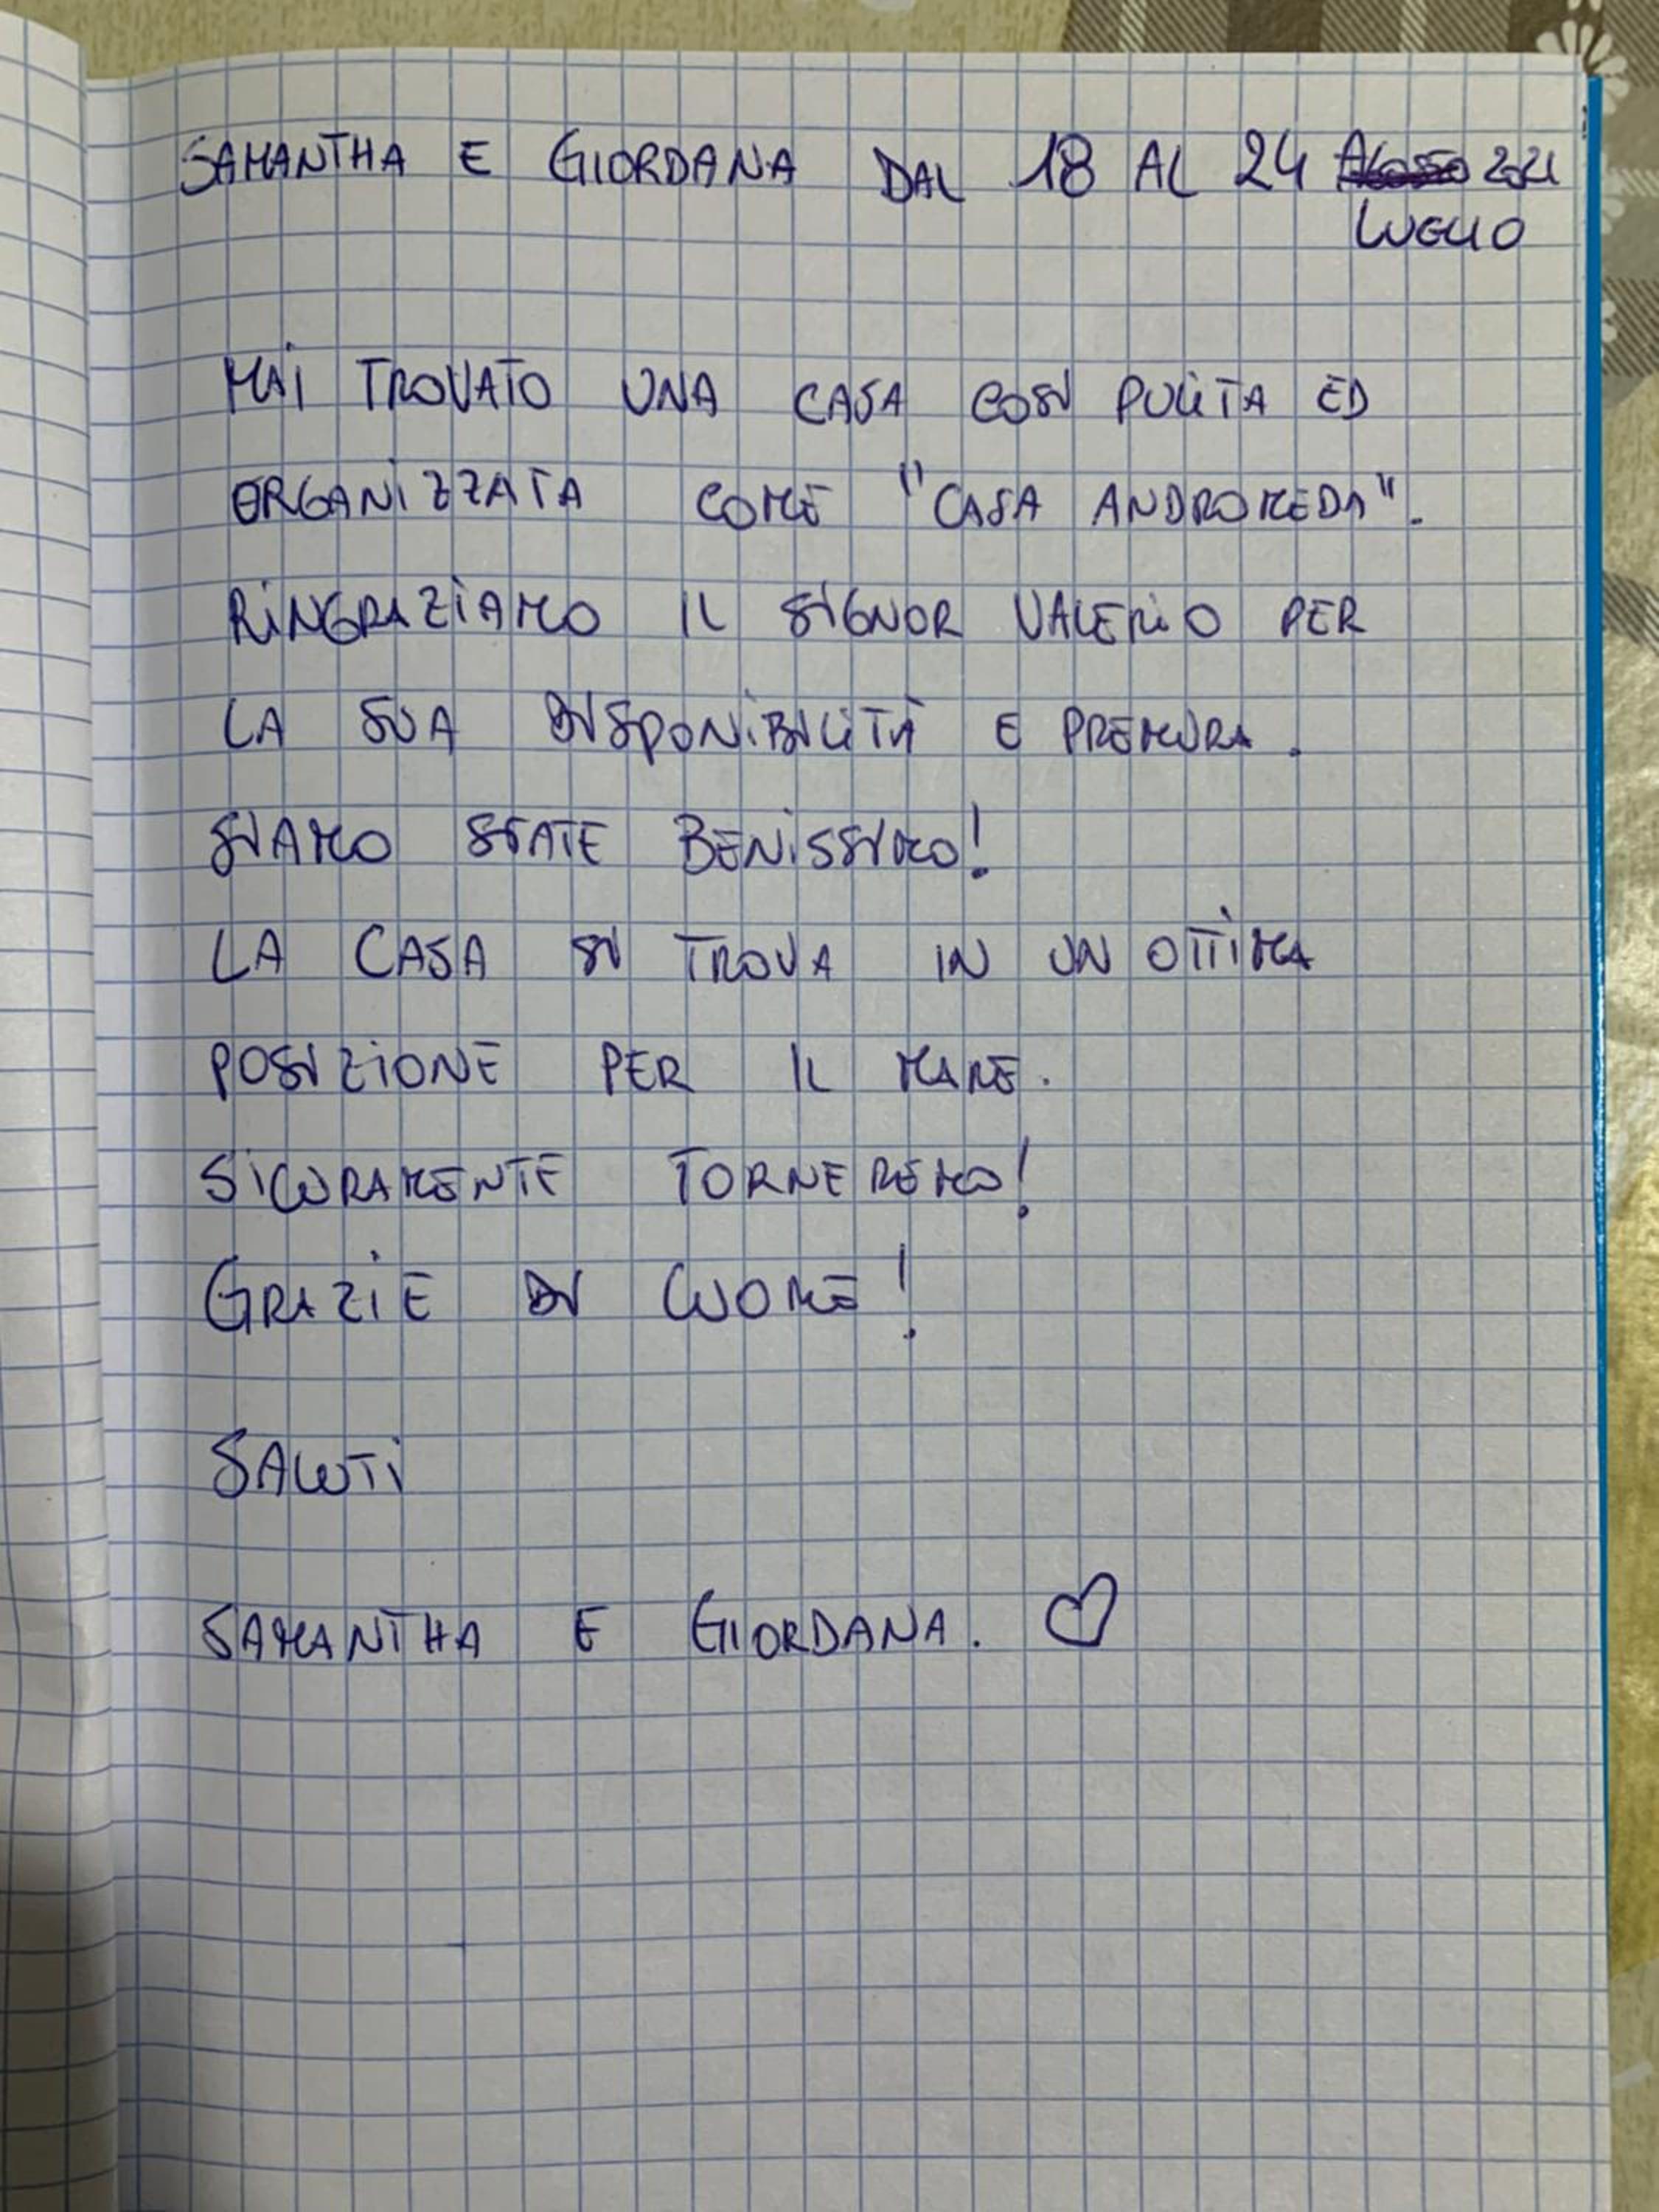 SAMANTHA E GIORDANA DAL 18 AL 24 AGOSTO 2021
LUGLIO
MAI TROVATO UNA CASA COSI PULITA ED
ORGANIZZATA COME "CASA ANDROMEDA".
RINGRAZIAMO IL SIGNOR VALERIO PER
LA SUA DISPONIBILITÀ E PREMURA.
SIAMO STATE BENISSIMO!
LA CASA SI TROVA IN UN OTTIMA
POSIZIONE PER IL MARE.
SICURAMENTE TORNEREMO!
GRAZIE DI CUORE!
SALUTI
SAMANTHA E GIORDANA.